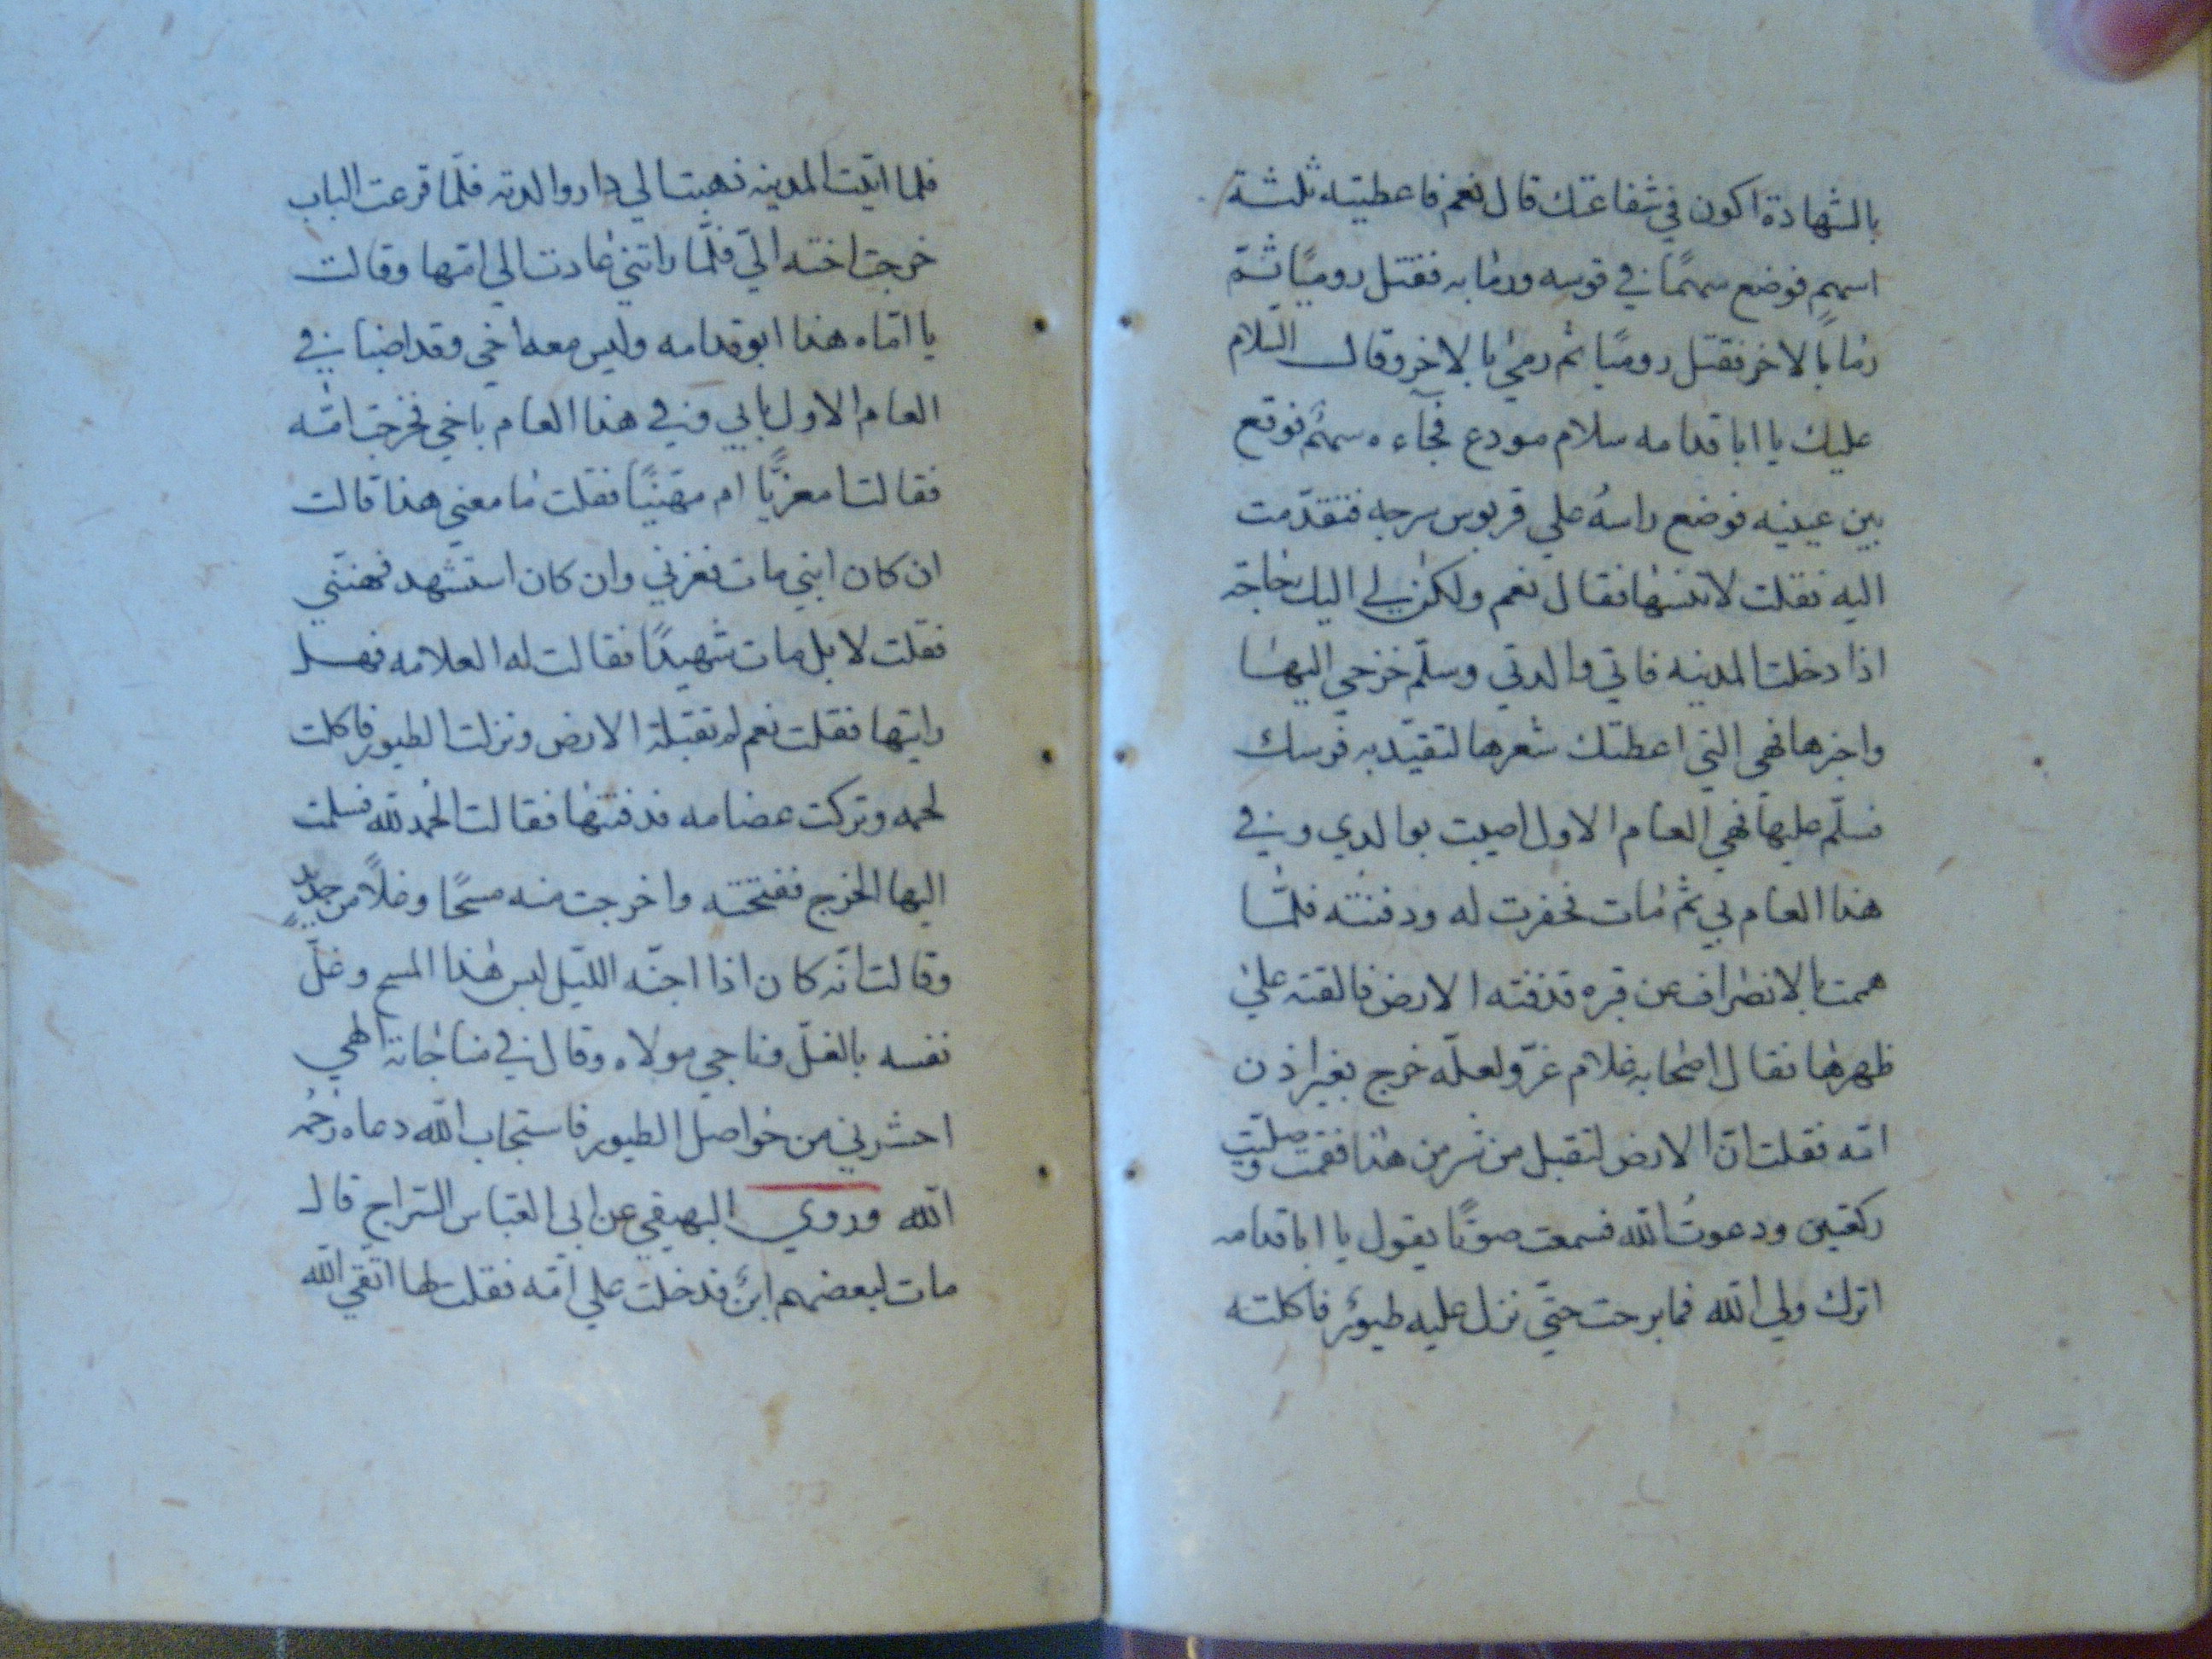 بالشهادة اكون في شفاعتك قال نعم فاعطيته ثلثة
اسهم فوضع سهمًا في قوسه ورما به فقتل روميًا ثم
رما بالاخر فقتل روميًا ثم رمى بالاخر وقال السلام
عليك يا ابا قدامه سلام مودع فجآءه سهمٌ فوقع
بين عينيه فوضع راسهُ علي قربوس سرجه فتقدّمت
اليه فقلت لا تنسها فقال نعم ولكن لي اليك حاجة
اذا دخلت المدينه فاتي والدتي وسلّم خرجي اليها
واخبرها فهي التي اعطتك شعرها لتقيّد به فرسك
فسلّم عليها فهي العام الاول اصيبت بوالدي وفي
هذا العام بي ثم مات فحفرت له ودفنته فلمّا
هممت بالانصراف عن قبره قذفته الارض فالقته علي
ظهرها فقال اصحابه غلام غرّ ولعلّه خرج بغير اذن
امّه فقلت انّ الارض لتقبل من شر من هذا فقمت وصليت
ركعتين ودعوتُ الله فسمعت صوتًا يقول يا ابا قدامه
اترك ولي الله فما برحت حتّي نزل عليه طيورٌ فاكلته
فلما اتيت المدينه ذهبت الي دار والدته فلمّا قرعت الباب
خرجت اخته اليّ فلمّا راتني عادت الي امّها وقالت
يا امّاه هذا ابو قدامه وليس معه اخي وقد اصبنا في
العام الاول بابي وفي هذا العام باخي فخرجت امّه
فقالت امعزيًّا ام مهنّيًا فقلت ما معني هذا قالت
ان كان ابني مات فعزني وان كان استشهد فهنّني
فقلت لا بل مات شهيدًا فقالت له العلامه فهل
رايتها فقلت نعم لم تقبله الارض ونزلت الطيور فاكلت
لحمه وتركت عضامه فدفنتها فقالت الحمد لله فسلمت
اليها الخرج ففتحته واخرجت منه مسحًا وغلًا من حديدٍ
وقالت انّه كان اذا اجنّه الليل لبس هذا المسح وغلّ
نفسه بالغلّ وناجي مولاه وقال في مناجاته الهي
احشرني من حواصل الطيور فاستجاب الله دعاه رحمه
الله وروي البهيقي عن ابي العباس السّراج قال
مات لبعضهم ابنٌ فدخلت علي امّه فقلت لها اتّقي الله